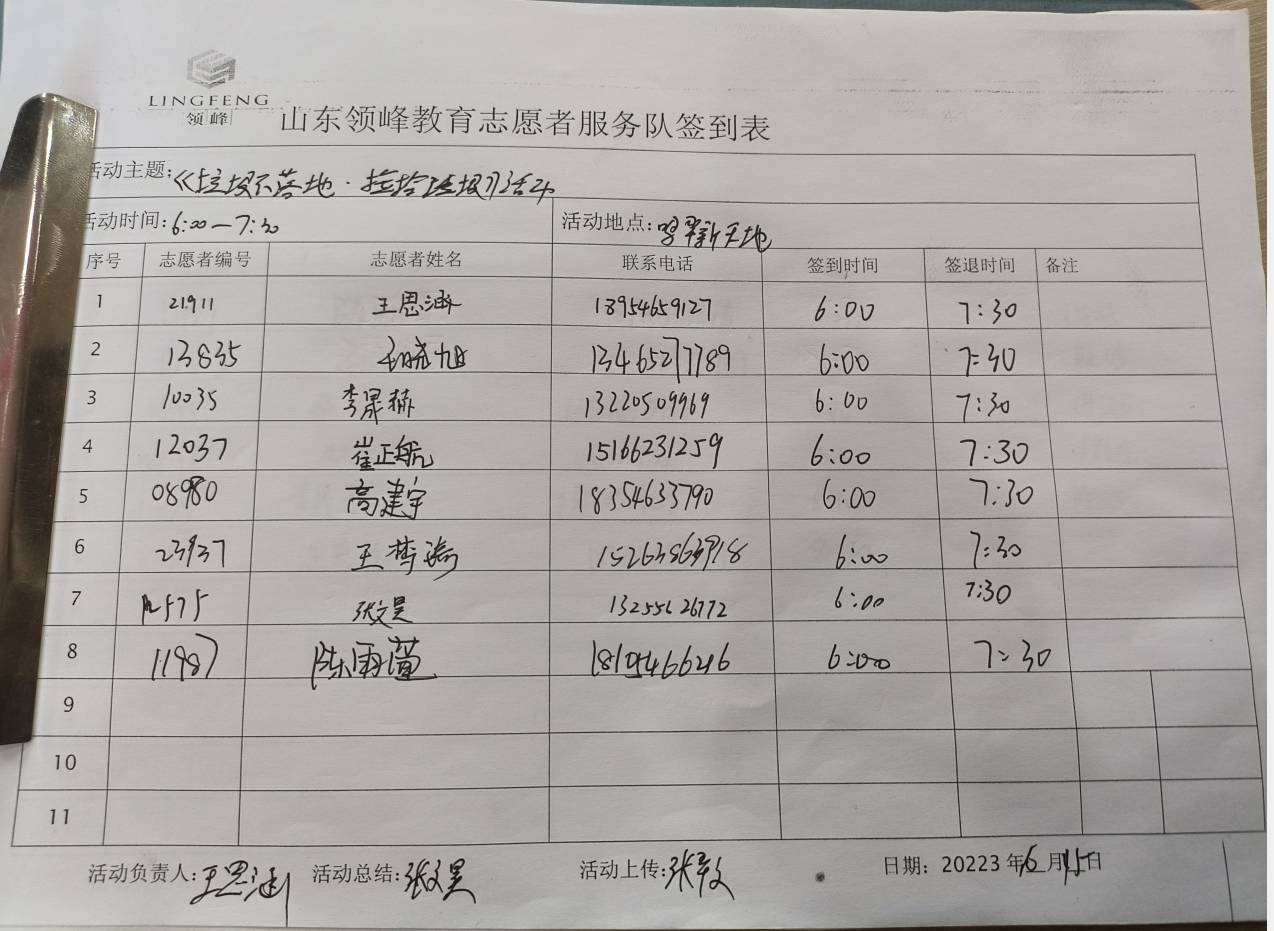 LINGFENG
领峰
山东领峰教育志愿者服务队签到表
活动主题:《垃圾不落地·捡拾垃圾》活动
活动时间:6:00—7:30 活动地点:新天地
序号 志愿者编号 志愿者姓名 联系电话 签到时间 签退时间 备注
1 21911 王思涵 13954659127 6:00 7:30
2 13835 晓旭 13465277789 6:00 7:30
3 10035 李晟赫 13220509969 6:00 7:30
4 12037 崔正航 15166231259 6:00 7:30
5 08980 高建宇 18354633790 6:00 7:30
6 23937 王梦瑜 6:00 7:30
7 张文昊 13255626772 6:00 7:30
8 11987 陈雨萱 6:00 7:30
9
10
11
活动负责人:王思涵 活动总结:张文昊 活动上传:张 日期:20223年6月15日